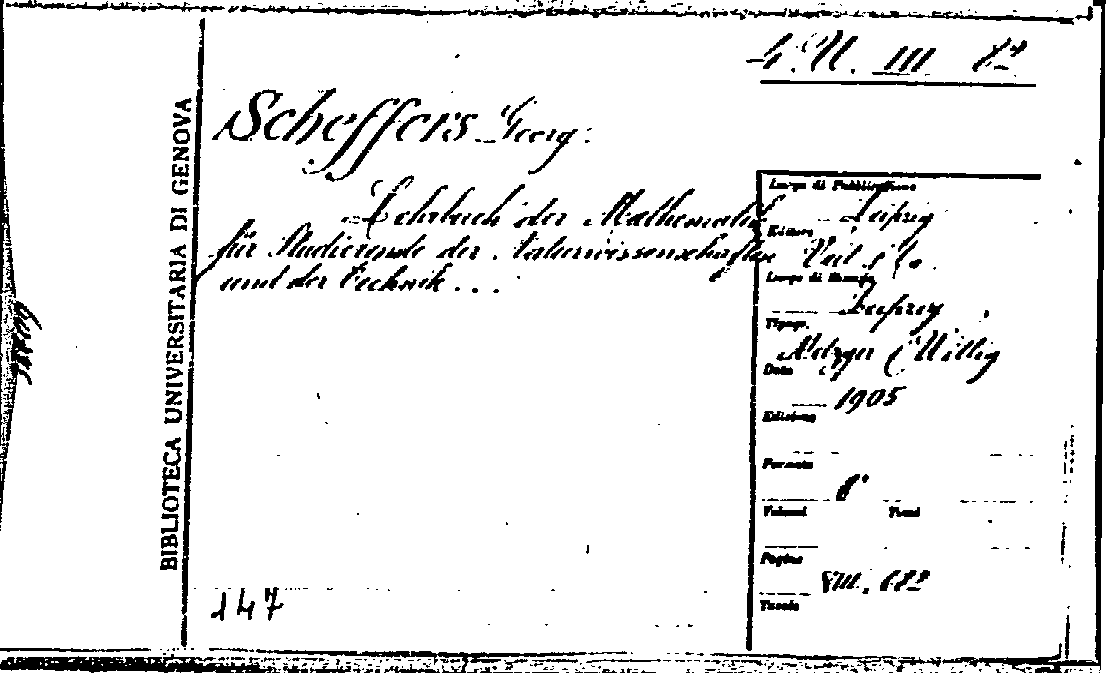 4. U. III 82
Scheffers Georg.
Lehrbuch der Mathematik
für Studierende der Naturwissenschaften
und der Technik...
BIBLIOTECA UNIVERSITARIA DI GENOVA
Luogo di Pubblicazione
Leipzig
Editore
Veit & Co.
Luogo di Stampa
Leipzig
Tipogr.
Metzger & Wittig
Data
1905
Edizione
Formato
8°
Volumi Tomi
Pagine
VIII. 682
Tavole
147